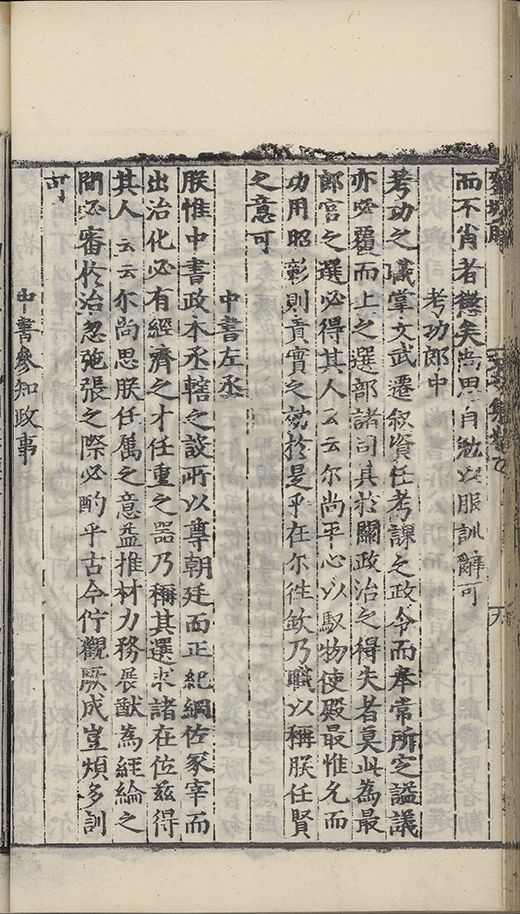 而不肖者懲矣尚思自勉以服訓辭可
考功郎中
考功之職掌文武遷叙資任考課之政令而奉常所定謚議
亦必覆而上之選部諸司其於關政治之得失者莫此為最
郎官之選必得其人云云尔尚平心以馭物使殿最惟允而
功用昭彰則責實之効於是乎在尔徃欽乃職以稱朕任賢
之意可
中書左丞
朕惟中書政本丞轄之設所以尊朝廷而正紀綱佐冢宰而
出治化必有經濟之才任重之器乃稱其選求諸在位兹得
其人云云尔尚思朕任舊之意益推材力務展猷為經綸之
間必審於治忽弛張之際必酌乎古今佇觀厥成豈煩多訓
可
中書參知政事